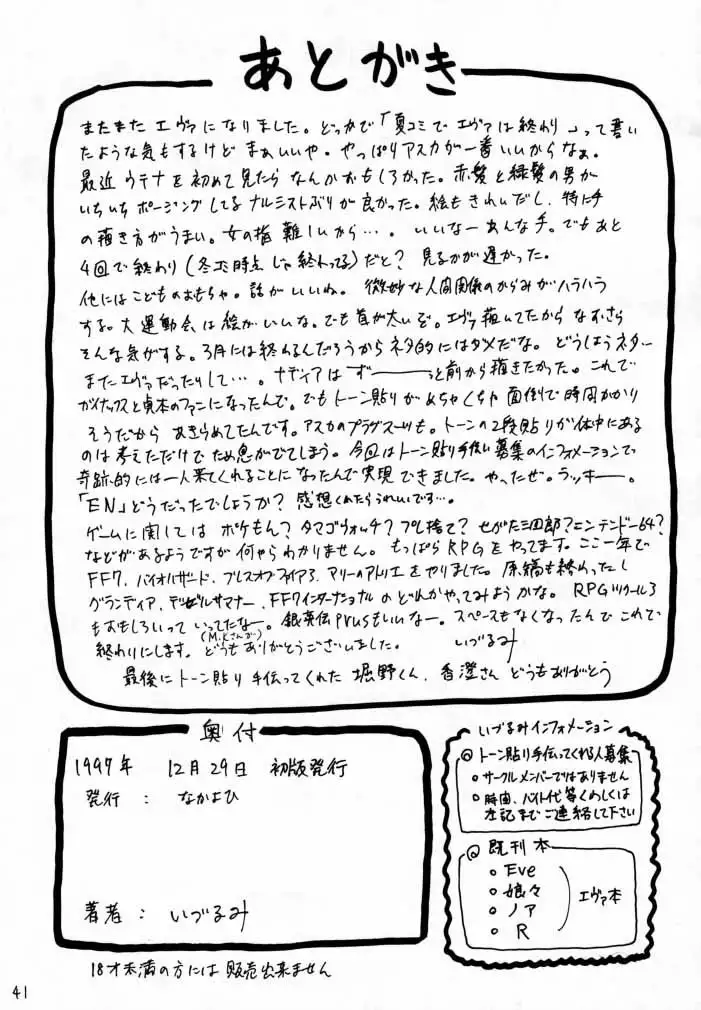 あとがき
またまたエヴァになりました。どっかで「夏コミでエヴァは終わり」って書い
たような気もするけどまぁいいや。やっぱりアスカが一番いいからなぁ。
最近ウテナを初めて見たらなんかおもしろかった。赤髪と緑髪の男が
いちいちポージングしてるナルシストぶりが良かった。絵もきれいだし、特に手
の描き方がうまい。女の指難しいから…。いいなーあんな手。でもあと
4回で終わり(冬コミ時点じゃ終わってる)だと?見るのが遅かった。
他にはこどものおもちゃ。話がいいね。微妙な人間関係のからみがハラハラ
する。大運動会は絵がいいな。でも首が太いぞ。エヴァ描いてたからなおさら
そんな気がする。3月には終わるんだろうからネタ的にはダメだな。どうしようネター
またエヴァだったりして…。ナディアはずーーーっと前から描きたかった。これで
ガイナックスと貞本のファンになったんで。でもトーン貼りがめちゃくちゃ面倒で時間かかり
そうだからあきらめてたんです。アスカのプラグスーツも。トーンの2段貼りが体中にある
のは考えただけでため息がでてしまう。今回はトーン貼り手伝い募集のインフォメーションで
奇跡的には一人来てくれることになったんで実現できました。やったぜ。ラッキー。
「EN」どうだったでしょうか?感想くれたらうれしいです…。
ゲームに関してはポケもん?タマゴウォッチ?プレ捨て?せがた三四郎?ニンテンドー64?
などがあるようですが何やらわかりません。もっぱらRPGをやってます。ここ一年で
FF7、バイオハザード、ブレスオブファイア3、マリーのアトリエをやりました。原稿も終わったし
グランディア、デビルサマナー、FF7インターナショナルのどれかやってみようかな。RPGツクール3
もおもしろいっていってたなー。銀英伝Plusもいいなー。スペースもなくなったんでこれで
(M.Kさんが)
終わりにします。どうもありがとうございました。 いづるみ
最後にトーン貼り手伝ってくれた堀野くん、香澄さんどうもありがとう
奥付
1997年 12月29日 初版発行
発行 : なかよひ
著者 : いづるみ
いづるみインフォメーション
◎トーン貼り手伝ってくれる人募集
○サークルメンバーではありません
○時間、バイト代等くわしくは
左記までご連絡して下さい
◎既刊本
○Eve
○娘々
○ノア
○R
エヴァ本
18才未満の方には販売出来ません
41